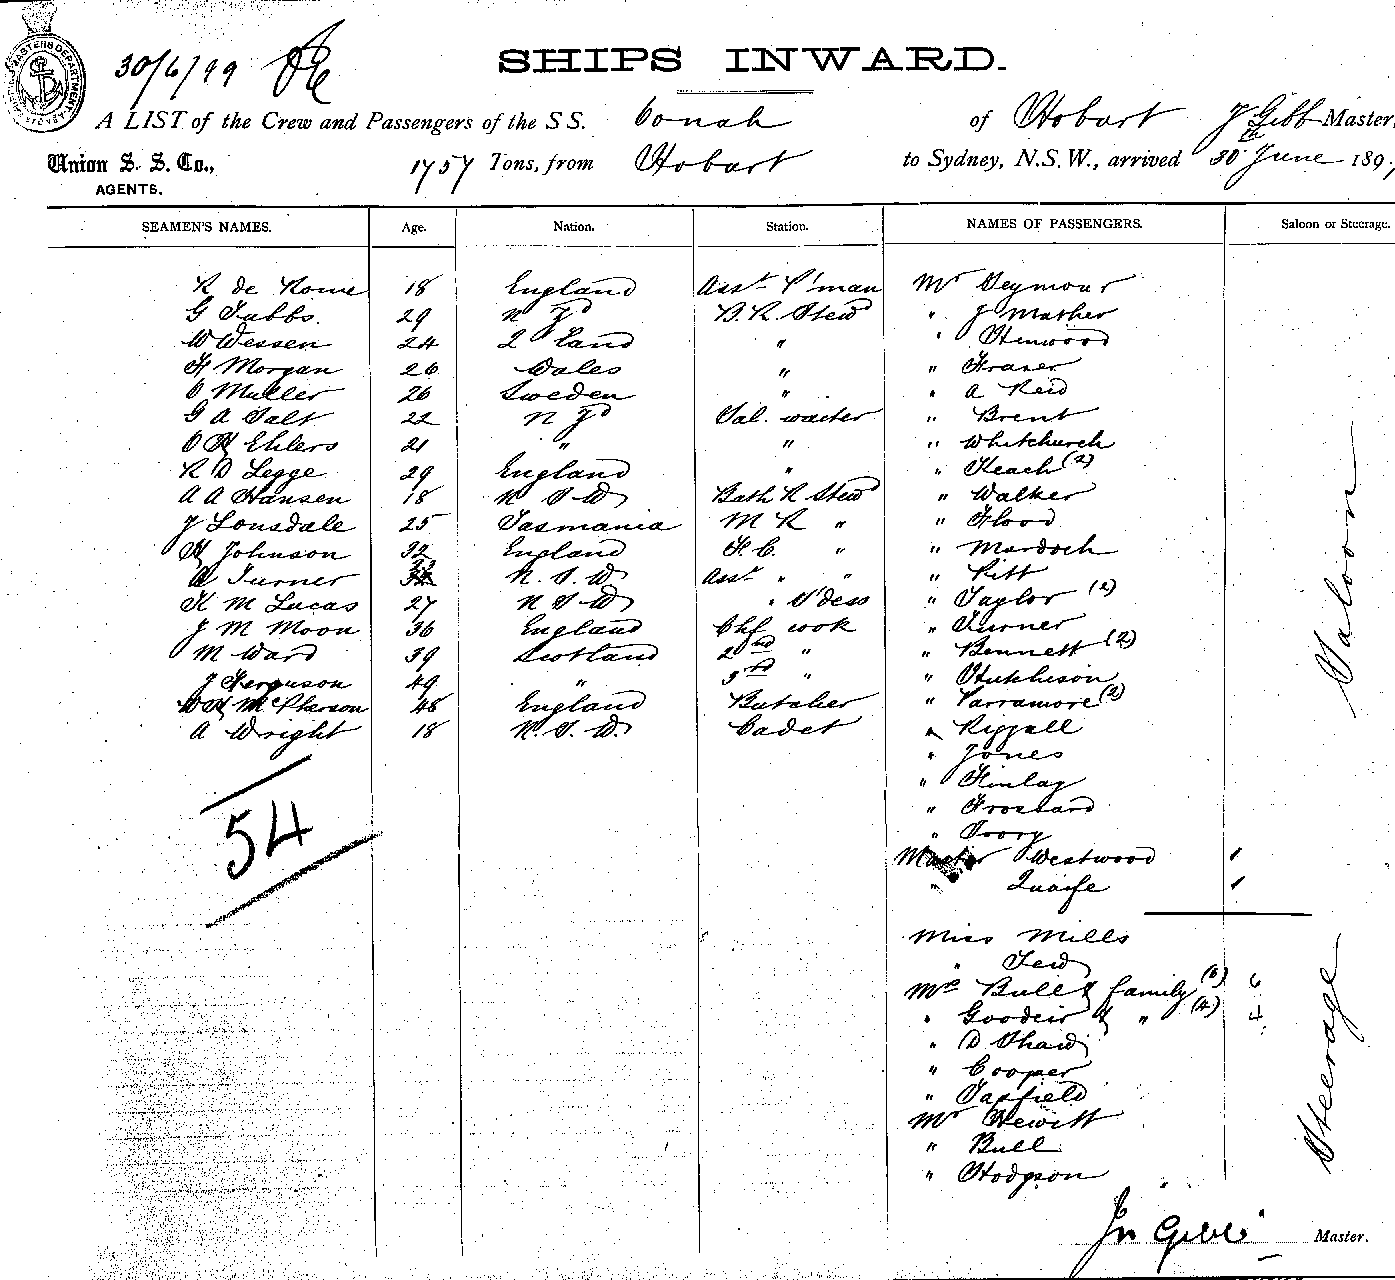 30/6/99
SHIPS INWARD.
A LIST of the Crew and Passengers of the S S. Oonah of Hobart J Gibb Master,
Union S. S. Co., 1757 Tons, from Hobart to Sydney, N.S.W., arrived 30th June 189
AGENTS.
SEAMEN'S NAMES. Age. Nation. Station. NAMES OF PASSENGERS. Saloon or Steerage.
R de Rome 18 England Asst P'man Mr Seymour
G Tubbs. 29 N Zd B. R. Stewd " J Mather
W Wessen 24 Q land " " Henwood
H Morgan 26 Wales " " Fraser
O Muller 26 Sweden " " A Reid
G A Salt 22 N Zd Sal. waiter " Brent
O H Ehlers 21 " " " Whitchurch
R D Legge 29 England " " Keach (2)
A A Hansen 18 N S W Bath R Stewd " Walker
J Lonsdale 25 Tasmania M R " " Flood
H Johnson 32 England F. C. " " Murdoch
A Turner 23 N. S. W Asst " " " Pitt
K M Lucas 27 N S W " S'dess " Taylor (2)
J M Moon 36 England Chf cook " Turner
M Ward 39 Scotland 2nd " " Bennett (2)
J Ferguson 49 " 3rd " " Hutchison
W H McPherson 48 England Butcher " Parramore (2)
A Wright 18 N. S. W. Cadet " Riggall
" Jones
" Finlay
" Frossard
" Ivory
Master Westwood
" Quaife
Saloon
54
Miss Mills
" Tew
Mrs Bull & family (6) 6
" Goodeir & " (4) 4
" D Shaw
" Cooper
" Tasfield
Mr Hewitt
" Bull
" Hodgson
Steerage
Jn Gibb Master.